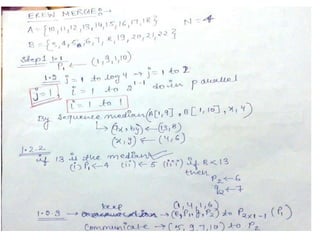 EREW MERGE :→
A = {10,11,12,13,14,15,16,17,18} N=4
B = {3,4,5,6,7,8,19,20,21,22}
Step 1 1.1
P₁ ← (1,9,1,10)
1.2 j = 1 to log 4 → j = 1 to 2
j=1 i = 1 to 2¹⁻¹ do in parallel
i = 1 to 1
By Sequence median (A[1,9], B[1,10], x,y)
(x,y) ← (4,6)
1.2.2
if 13 is the median
(i) P₁ ← 4 (ii) ← 5 (iii) if 8<13
then
P₂ ← 6
q₂ ← 7
1.2.3 → keep (1,4,1,6) to P₂ₓ₁₋₁ (P₁)
Communicate → (5,9,7,10) to P₂